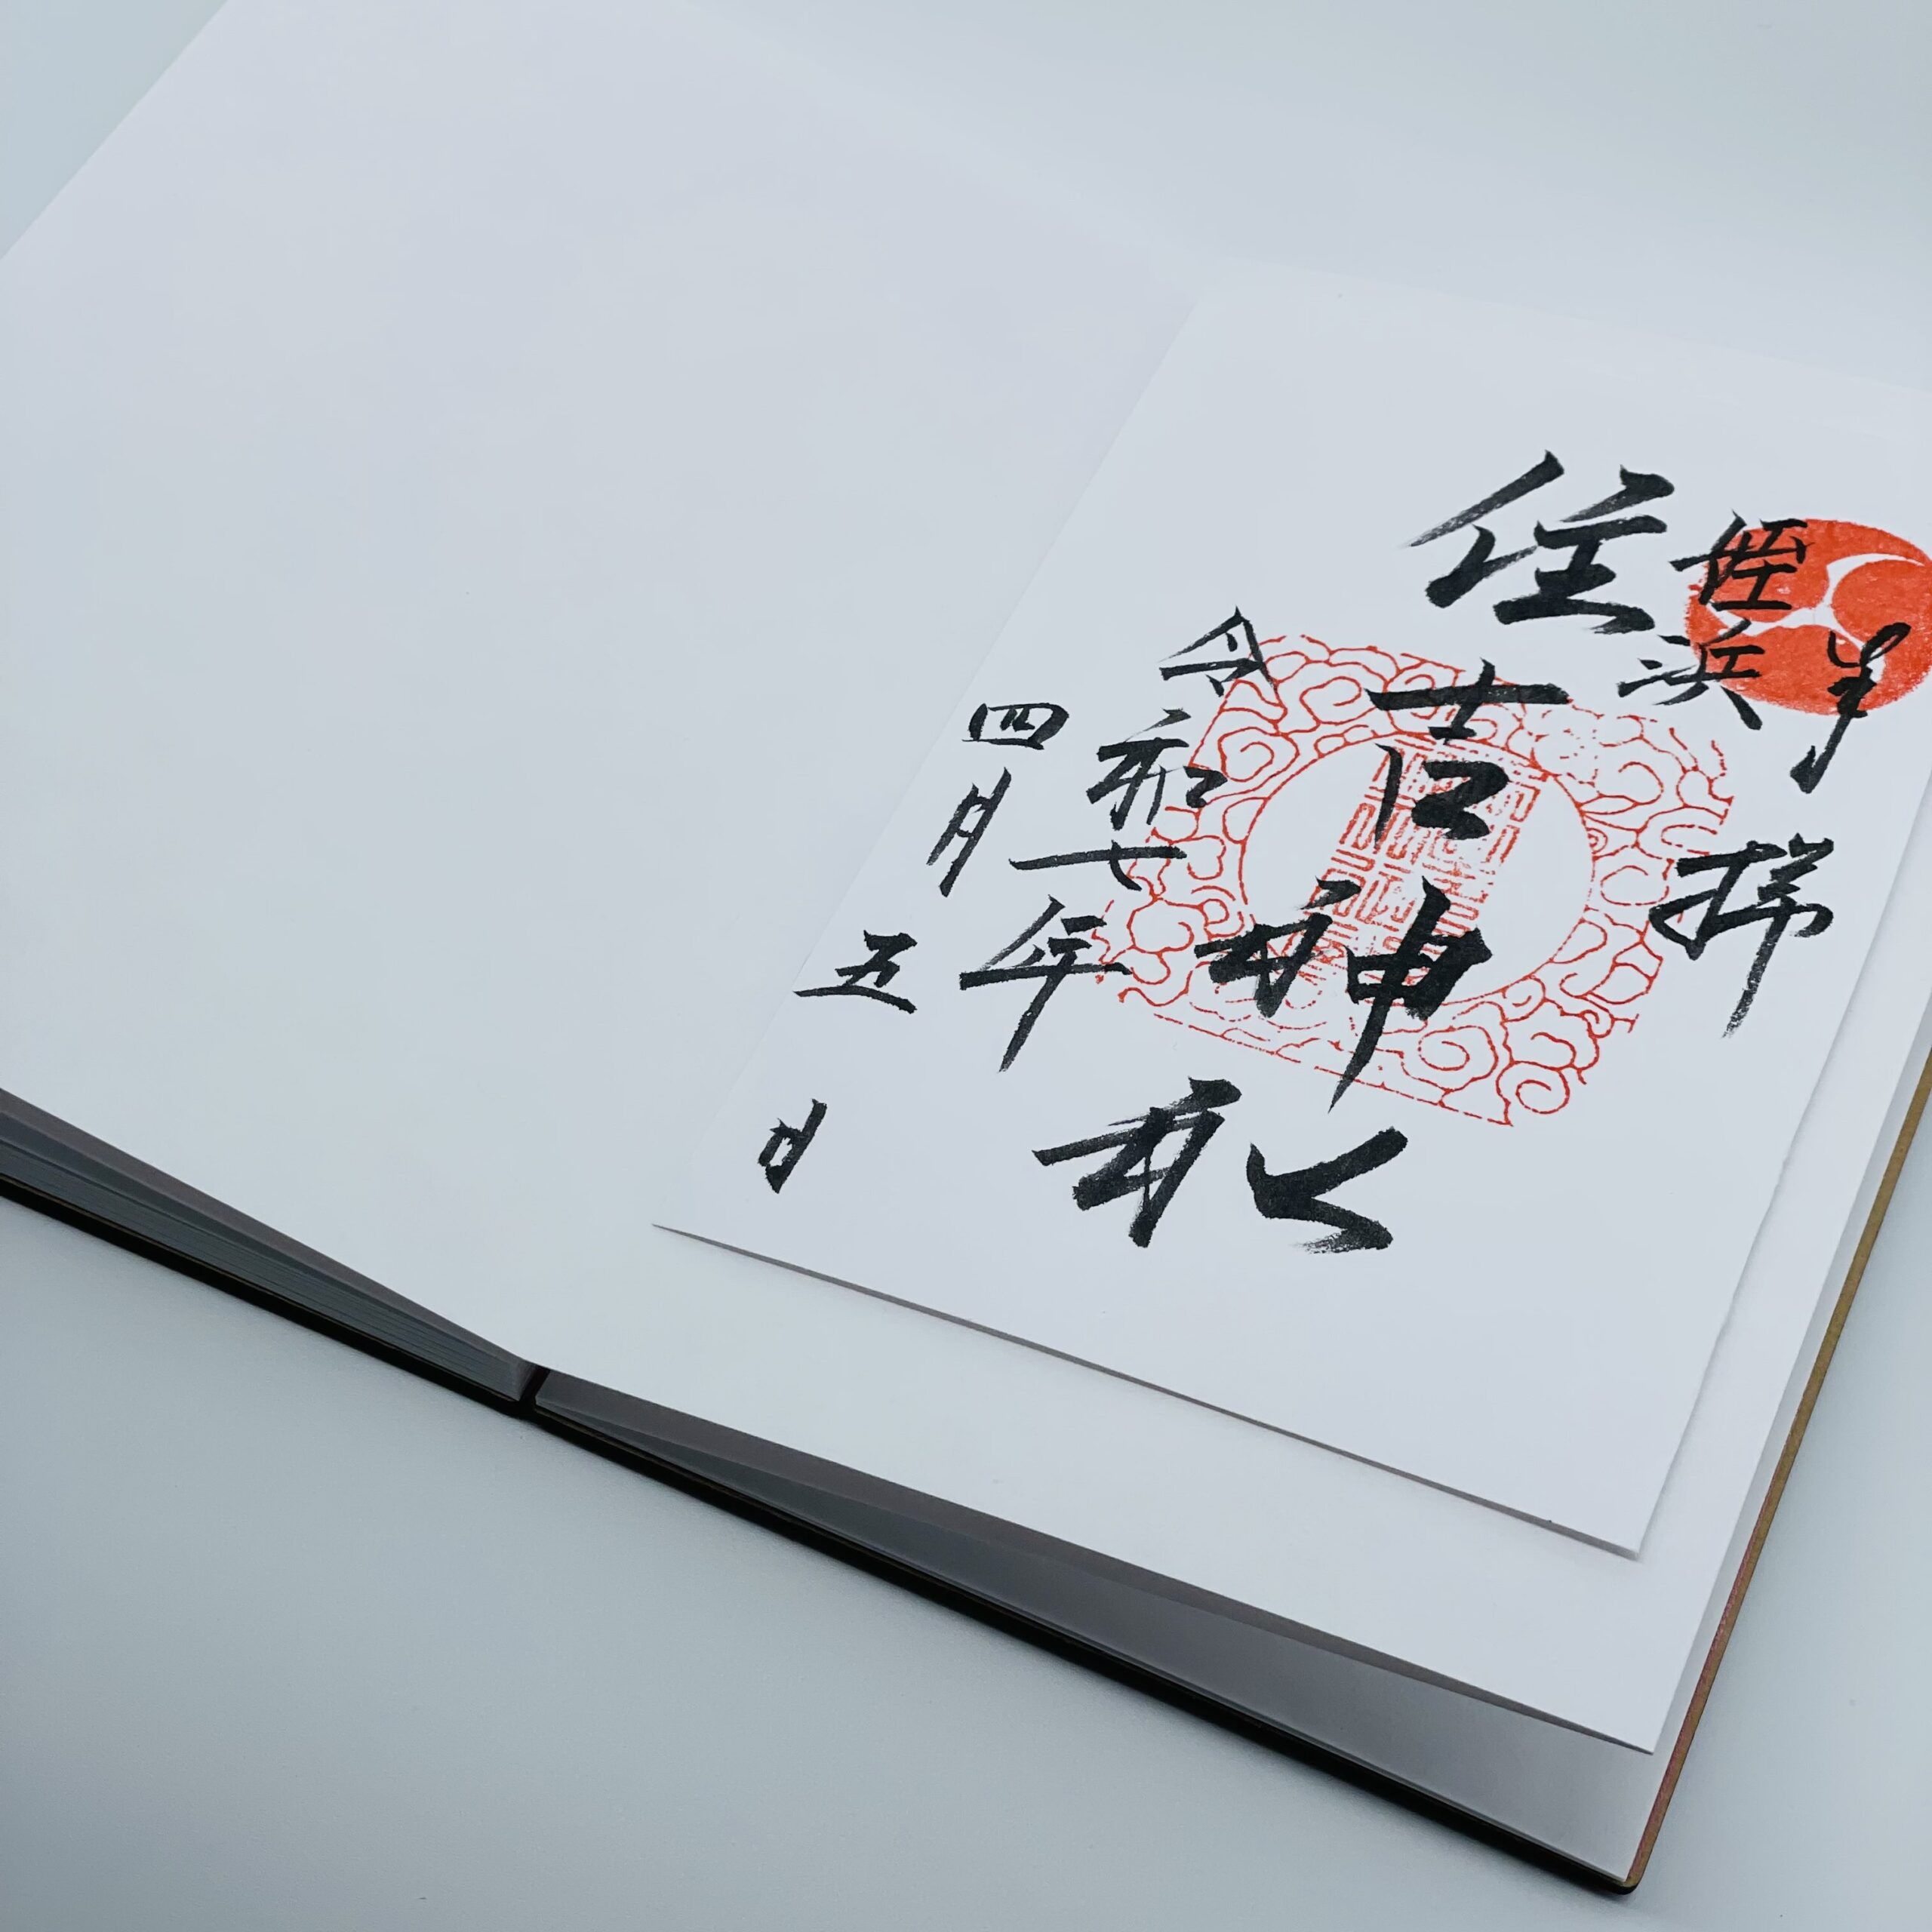 奉拝
姪浜
住吉神社
令和七年
四月五日